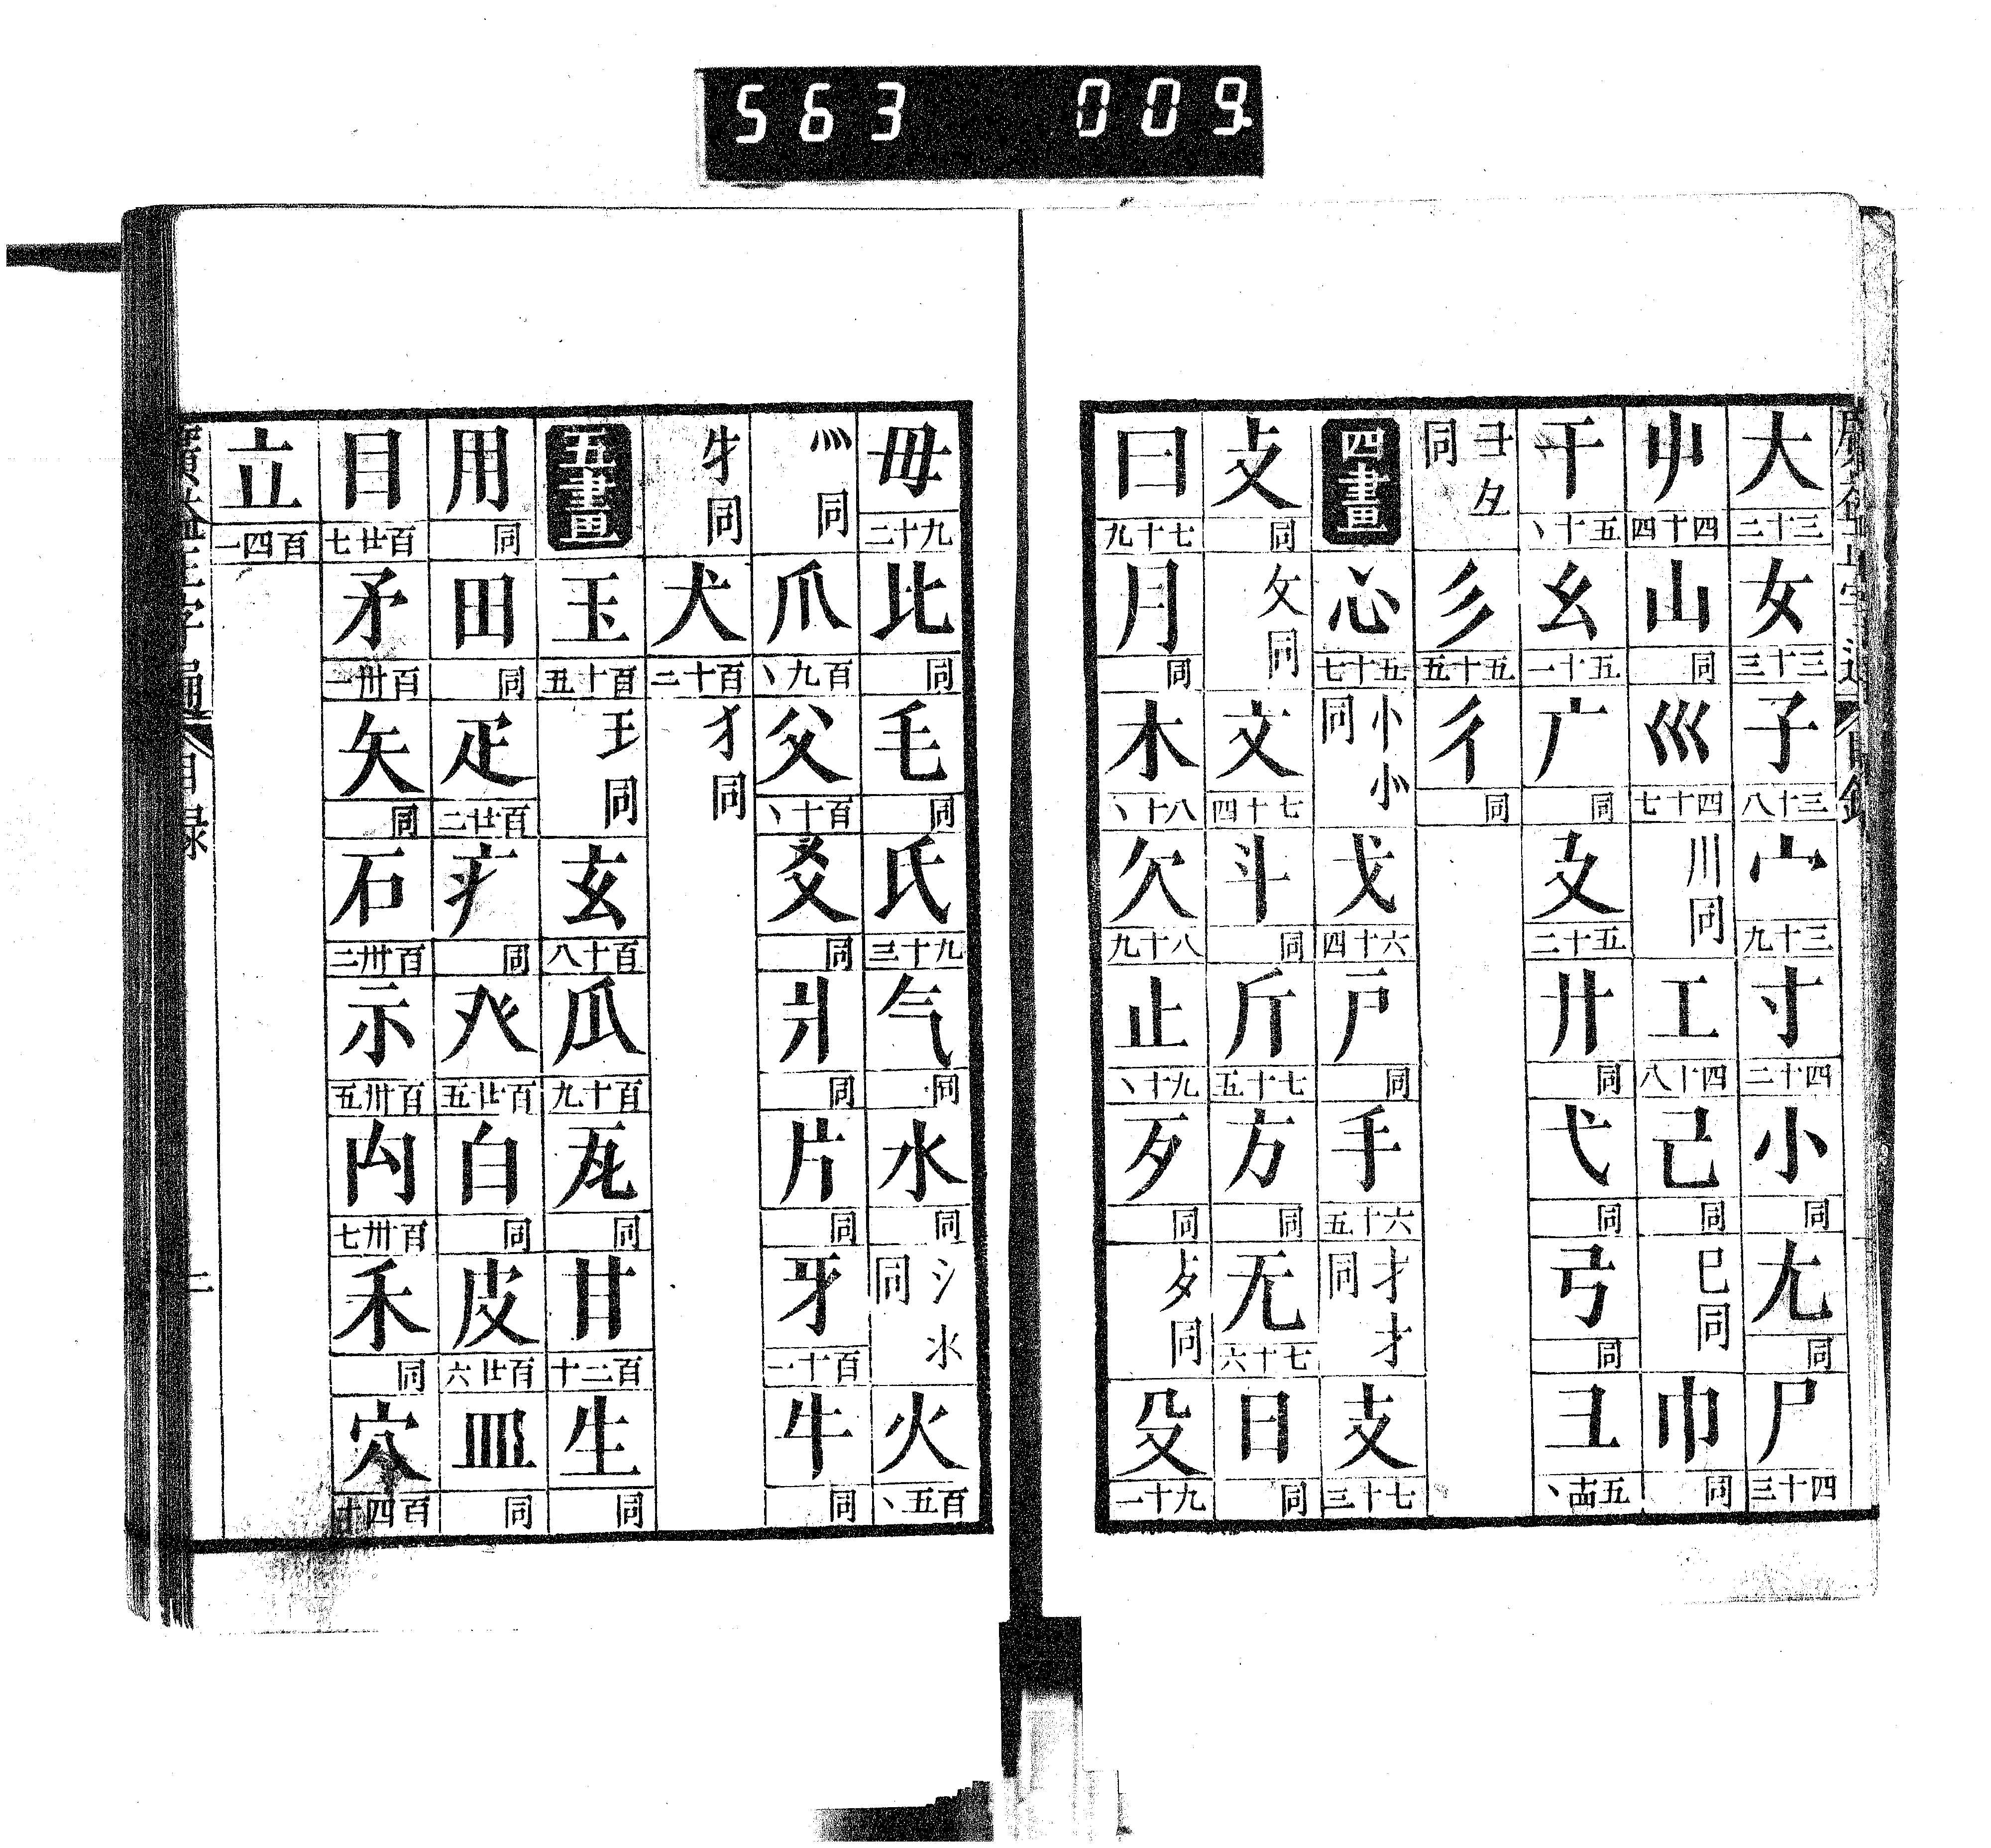 563 009.
大 三十二 女 三十三 子 三十八 宀 三十九 寸 四十二 小 同 尢 同 尸 四十三
屮 四十四 山 同 巛 四十七 川同 工 四十八 己 同 巳同 巾 同
干 五十丶 幺 五十一 广 同 廴 五十二 廾 同 弋 同 弓 同 彐
彐 同 彡 五十五 彳 同
四畫 心 五十七 忄㣺同 戈 六十四 戶 同 手 六十五 扌才同 支 七十三
攴 同 攵同 文 七十四 斗 同 斤 七十五 方 同 无 七十六 日 同
曰 七十九 月 同 木 八十丶 欠 八十九 止 九十丶 歹 同 歺同 殳 九十一
毋 九十二 比 同 毛 同 氏 九十三 气 同 水 同 氵氺同 火 百五丶
灬同 爪 百九丶 父 百十丶 爻 同 爿 同 片 同 牙 百十一 牛 同
牜同 犬 百十二 犭同
五畫 玉 百十五 王同 玄 百十八 瓜 百十九 瓦 同 甘 百二十 生 同
用 同 田 同 疋 百廿二 疒 同 癶 百廿五 白 同 皮 百廿六 皿 同
目 百廿七 矛 百卅一 矢 同 石 百卅二 示 百卅五 禸 百卅七 禾 同 穴 百四十
立 百四一
目録 二